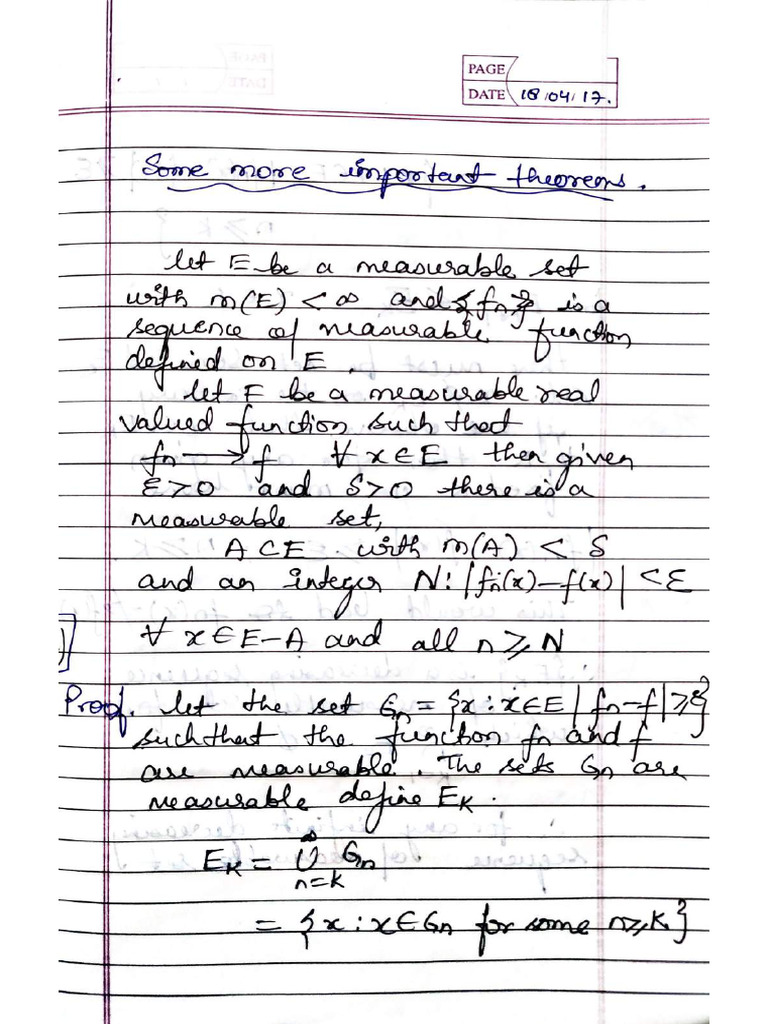 PAGE
DATE 18/04/17.
Some more important theorems.
let E be a measurable set
with m(E) < ∞ and {fn} is a
sequence of measurable function
defined on E.
let F be a measurable real
valued function such that
fn → f ∀ x∈E then given
ε>0 and S>0 there is a
measurable set,
A⊂E with m(A) < S
and an integer N: |fn(x)-f(x)| <ε
∀ x∈E-A and all n≥N
Proof. let the set Gn = {x: x∈E | fn-f|≥ε}
such that the function fn and f
are measurable. The sets Gn are
measurable define EK.
EK = ∞∪n=k Gn
= {x: x∈Gn for some n≥K}